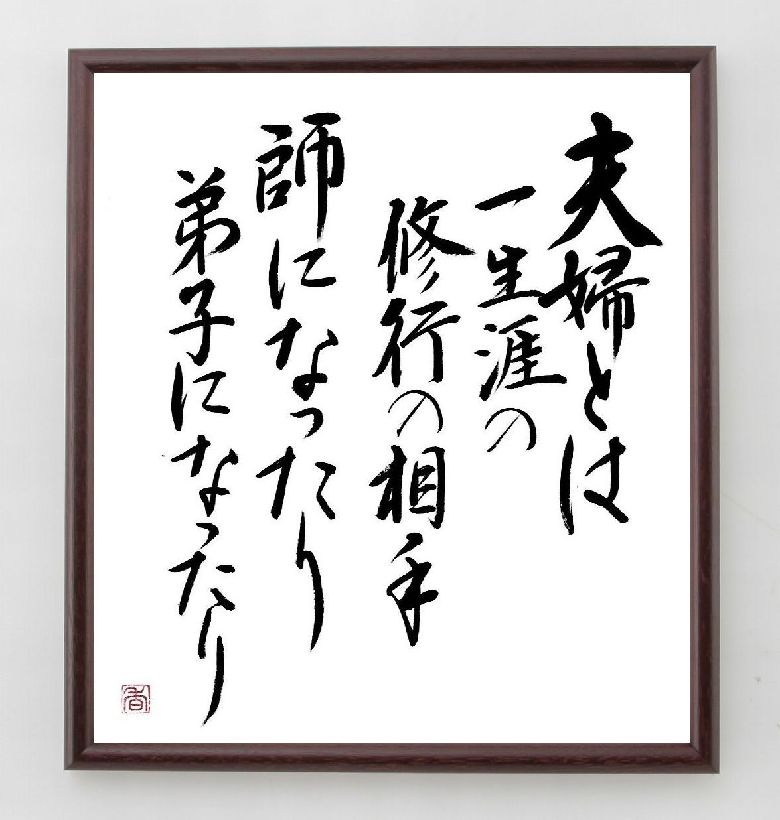 夫婦とは
一生涯の
修行の相手
師になったり
弟子になったり
香